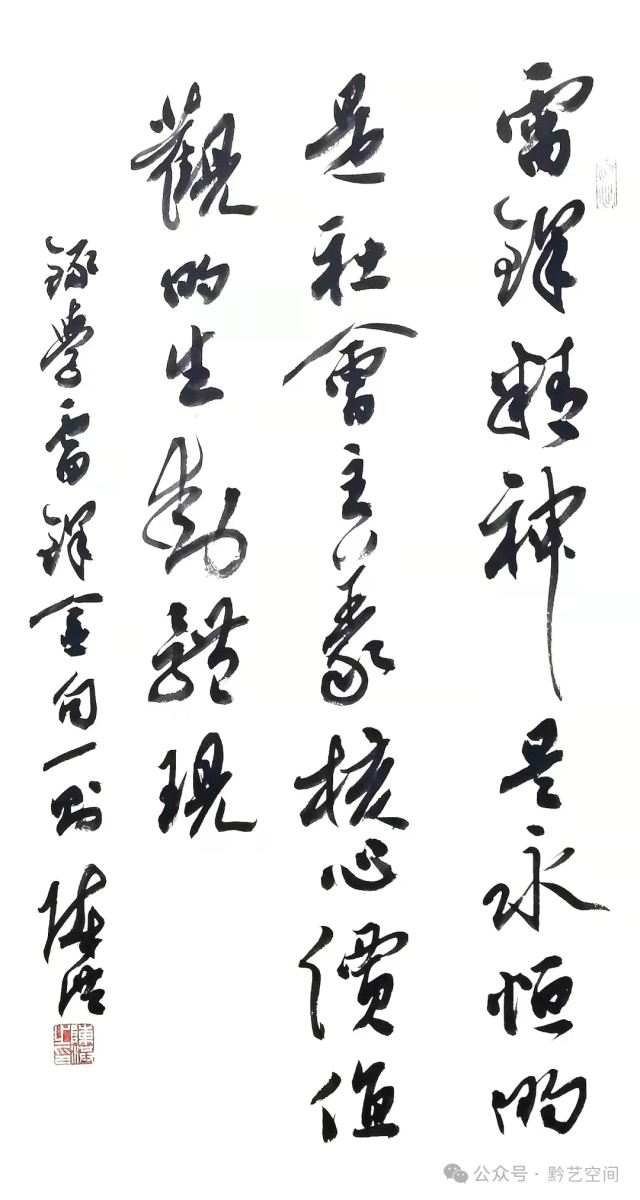 雷鋒精神是永恒的
是社會主義核心價值
觀的生動體現
錄學雷鋒金句一則 陳
公众号 · 黔艺空间